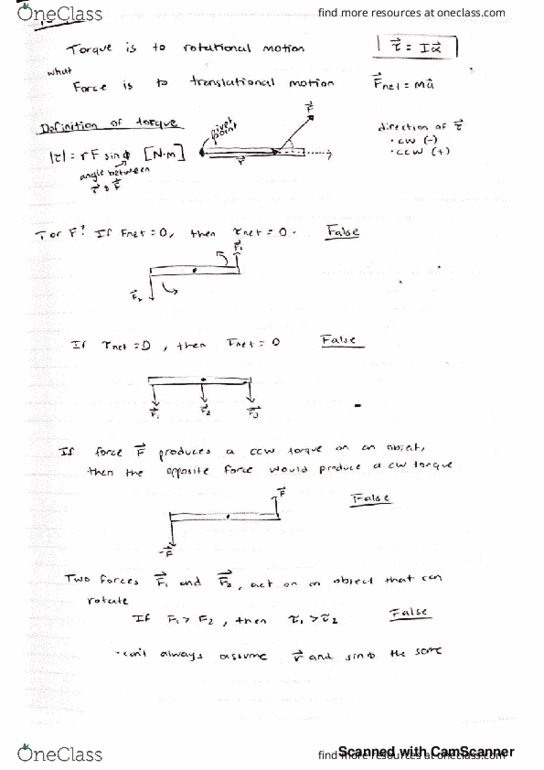 OneClass
find more resources at oneclass.com
Torque is to rotational motion
τ⃗ = Iα⃗
what
Force is to translational motion
F⃗net = ma⃗
Definition of torque
pivot point
F⃗
direction of τ⃗
· cw (-)
· ccw (+)
|τ| = rF sinϕ [N·m]
r⃗
angle between
r⃗ & F⃗
T or F? If Fnet = 0, then τnet = 0. False
F⃗1
F⃗2
If τnet = 0, then Fnet = 0 False
F⃗1
F⃗2
F⃗3
If force F⃗ produces a ccw torque on an object,
then the opposite force would produce a cw torque
F⃗
False
-F⃗
Two forces F⃗1 and F⃗2, act on an object that can
rotate
If F1 > F2, then τ1 > τ2 False
· can't always assume r⃗ and sinϕ the same
OneClass
find more resources at oneclass.com
Scanned with CamScanner